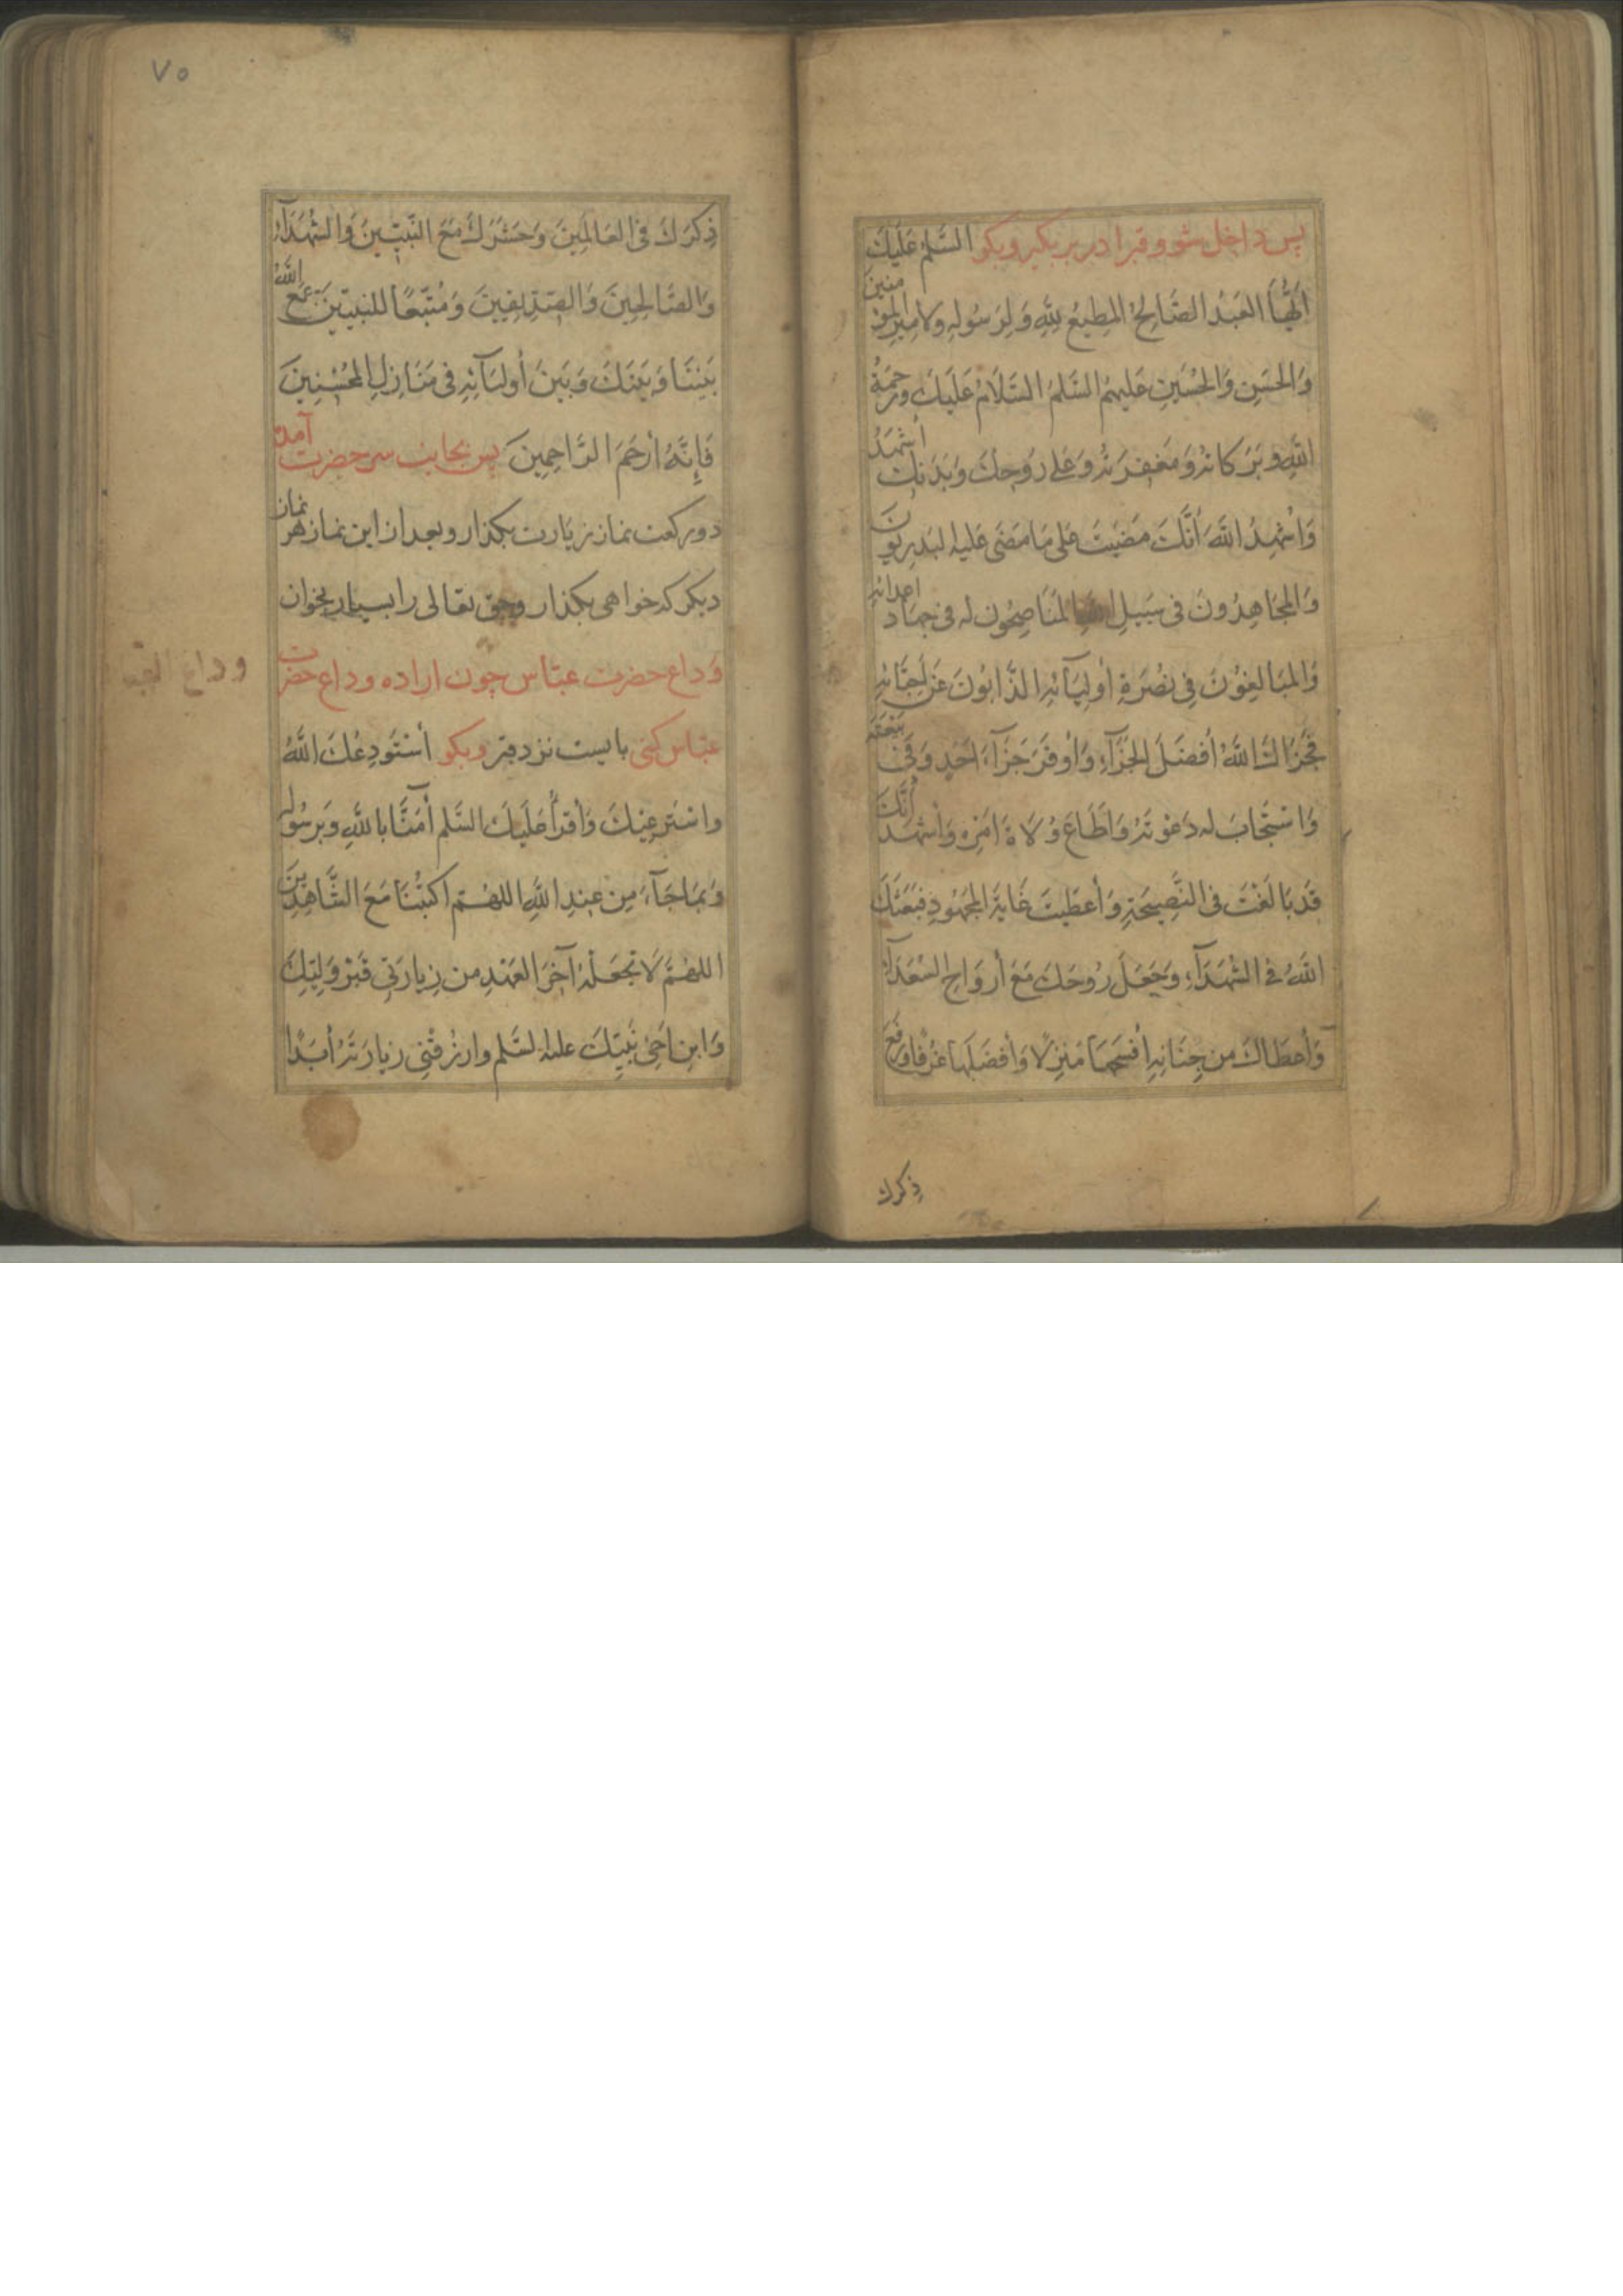 پس داخل شو و قبرا در بر بکیر و بکو السَّلمُ عَلَیكَ
اَیُّهَا العَبدُ الصَّالِحُ المُطِیعُ لِلّهِ وَلِرَسُولِهِ وَلامِیرِ المؤمنینَ
وَالحَسَنِ وَالحُسَینِ عَلیهِمُ السَّلمُ السَّلامُ عَلَیكَ ورَحمَةُ
اللّهِ وبَرَکاتُهُ وَمَغفِرَتُهُ وَعَلی رَوُحِكَ وَبَدَنِكَ أشهَدُ
وَاُشهِدُ اللّهَ أنَّكَ مَضَیتَ عَلی مَا مَضَی عَلیهِ البَدرِیّونَ
وَالمجَاهِدُونَ فی سَبیلِ اللهِ المنَاصِحُون له فی جهَاد اعدائهِ
وَالمبَالِغوُنَ فِی نُصرَةِ أولِیَآئهِ الذَّابّوُنَ عَن اَحِبَّائِهِ
فَجَزَاكَ اللّهُ أفضَلَ الجَزَآءِ وَأوفَرَ جَزَآءِ اَحَدٍ وَفَی بِبَیعَتِه
وَاستَجَابَ له دَعوَتَهُ وَاَطَاعَ وُلَاةَ اَمرِه وَأشهَدُ أنَّكَ
قَد بَالَغتَ فی النَّصِیحَةِ وَأعطَیتَ غَایَةَ المجَهُودِ فَبَعَثَكَ
اللهُ فی الشُهَدَآءِ وَجَعَلَ رُوحَكَ مَعَ أروَاحِ السُّعَدَآء
وَأعطَاكَ مِن جِنَانِهِ أفسَحَهَا مَنزِلًا وَأفضَلَهَا غُرَفًا وَرَفَعَ
ذِکرك
۷۵
ذِکرَكَ فی العَالَمِینَ وَحَشَرَكَ مَعَ النَّبِیّینَ وَالشُهَدَآءِ
وَالصَّالِحِینَ وَالصِّدّیقِینَ وَمُتَّبِعًا للنبیّینَ جَمَعَ اللّهُ
بَینَنَا وَبَینَكَ وَبَینَ أولیَآئِهِ فی مَنَازِلِ المُحسِنِینَ
فَإِنَّهُ أرحَمَ الرَّاحِمِینَ پس بجانب سر حضرت آمده
دو رکعت نماز زیارت بکذار و بعد از این نماز هر نماز
دیکر که خواهی بکذار و حق تعالی را بسیار بخوان
وَداع حضرت عبّاس چون اراده وداع حضرت
عبّاس کنی بایست نزد قبر و بکو أستَودِعُكَ اللّهُ
واستَرعِیكَ وَأقرَأُ عَلَیكَ السَّلم أمَنَّا بِاللهِ وَبِرسُوله
وَبمَاجَآءَ مِن عِندِ اللهِ اللهُمّ اکتُبنَا مَعَ الشَّاهِدِینَ
اللهُمَّ لَا تجعَلهُ آخِرَ العَهدِ من زِیارَتی قَبرَ وَلِیّكَ
وَابنِ اَخی نَبِیّكَ علیه لسَّلم وارزُقنِی زیارَتَهُ أبَدًا
وداع